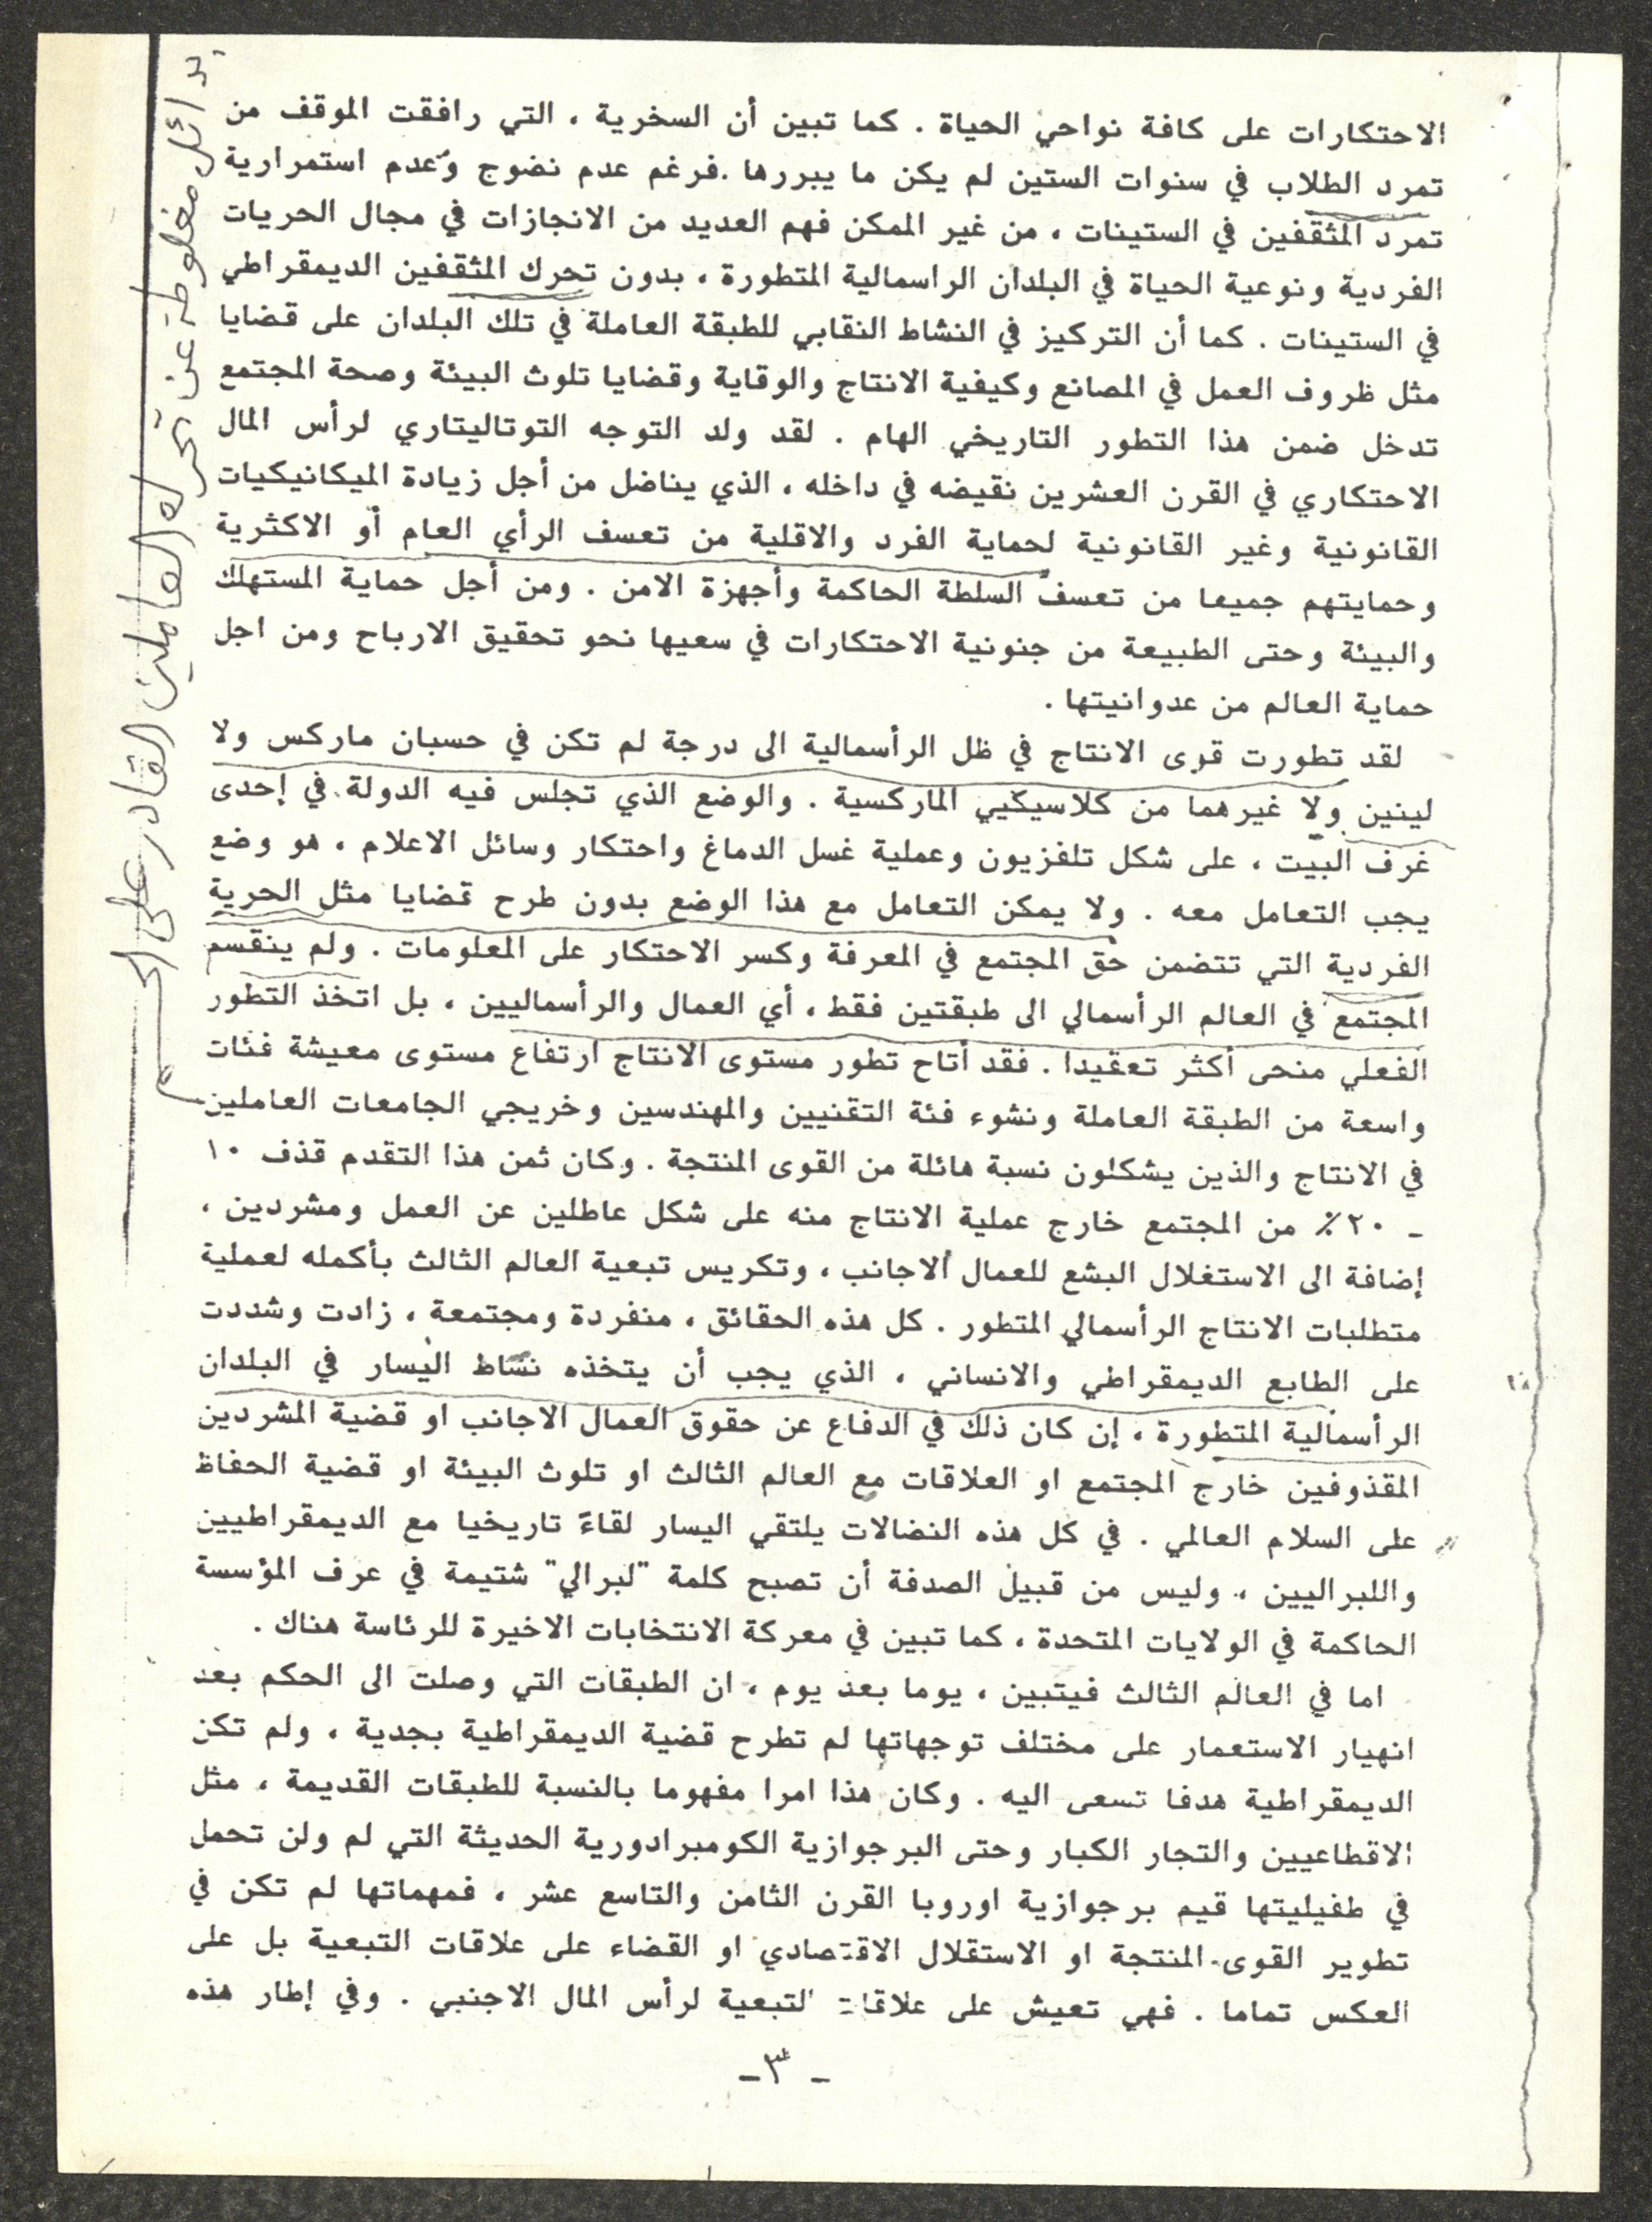 الاحتكارات على كافة نواحي الحياة . كما تبين أن السخرية ، التي رافقت الموقف من
تمرد الطلاب في سنوات الستين لم يكن ما يبررها .فرغم عدم نضوج وعدم استمرارية
تمرد المثقفين في الستينات ، من غير الممكن فهم العديد من الانجازات في مجال الحريات
الفردية ونوعية الحياة في البلدان الراسمالية المتطورة ، بدون تحرك المثقفين الديمقراطي
في الستينات . كما أن التركيز في النشاط النقابي للطبقة العاملة في تلك البلدان على قضايا
مثل ظروف العمل في المصانع وكيفية الانتاج والوقاية وقضايا تلوث البيئة وصحة المجتمع
تدخل ضمن هذا التطور التاريخي الهام . لقد ولد التوجه التوتاليتاري لرأس المال
الاحتكاري في القرن العشرين نقيضه في داخله ، الذي يناضل من أجل زيادة الميكانيكيات
القانونية وغير القانونية لحماية الفرد والاقلية من تعسف الرأي العام أو الاكثرية
وحمايتهم جميعا من تعسف السلطة الحاكمة وأجهزة الامن . ومن أجل حماية المستهلك
والبيئة وحتى الطبيعة من جنونية الاحتكارات في سعيها نحو تحقيق الارباح ومن اجل
حماية العالم من عدوانيتها .
لقد تطورت قوى الانتاج في ظل الرأسمالية الى درجة لم تكن في حسبان ماركس ولا
لينين ولا غيرهما من كلاسيكيي الماركسية . والوضع الذي تجلس فيه الدولة في إحدى
غرف البيت ، على شكل تلفزيون وعملية غسل الدماغ واحتكار وسائل الاعلام ، هو وضع
يجب التعامل معه . ولا يمكن التعامل مع هذا الوضع بدون طرح قضايا مثل الحرية
الفردية التي تتضمن حق المجتمع في المعرفة وكسر الاحتكار على المعلومات . ولم ينقسم
المجتمع في العالم الرأسمالي الى طبقتين فقط ، أي العمال والرأسماليين ، بل اتخذ التطور
الفعلي منحى أكثر تعقيدا . فقد أتاح تطور مستوى الانتاج ارتفاع مستوى معيشة فئات
واسعة من الطبقة العاملة ونشوء فئة التقنيين والمهندسين وخريجي الجامعات العاملين
في الانتاج والذين يشكلون نسبة هائلة من القوى المنتجة . وكان ثمن هذا التقدم قذف ١٠
- ٢٠٪ من المجتمع خارج عملية الانتاج منه على شكل عاطلين عن العمل ومشردين ،
إضافة الى الاستغلال البشع للعمال الاجانب ، وتكريس تبعية العالم الثالث بأكمله لعملية
متطلبات الانتاج الرأسمالي المتطور . كل هذه الحقائق ، منفردة ومجتمعة ، زادت وشددت
على الطابع الديمقراطي والانساني ، الذي يجب أن يتخذه نشاط اليسار في البلدان
الرأسمالية المتطورة ، إن كان ذلك في الدفاع عن حقوق العمال الاجانب او قضية المشردين
المقذوفين خارج المجتمع او العلاقات مع العالم الثالث او تلوث البيئة او قضية الحفاظ
على السلام العالمي . في كل هذه النضالات يلتقي اليسار لقاءً تاريخيا مع الديمقراطيين
واللبراليين ، وليس من قبيل الصدفة أن تصبح كلمة "لبرالي" شتيمة في عرف المؤسسة
الحاكمة في الولايات المتحدة ، كما تبين في معركة الانتخابات الاخيرة للرئاسة هناك .
اما في العالم الثالث فيتبين ، يوما بعد يوم ، ان الطبقات التي وصلت الى الحكم بعد
انهيار الاستعمار على مختلف توجهاتها لم تطرح قضية الديمقراطية بجدية ، ولم تكن
الديمقراطية هدفا تسعى اليه . وكان هذا امرا مفهوما بالنسبة للطبقات القديمة ، مثل
الاقطاعيين والتجار الكبار وحتى البرجوازية الكومبرادورية الحديثة التي لم ولن تحمل
في طفيليتها قيم برجوازية اوروبا القرن الثامن والتاسع عشر ، فمهماتها لم تكن في
تطوير القوى المنتجة او الاستقلال الاقتصادي او القضاء على علاقات التبعية بل على
العكس تماما . فهي تعيش على علاقات التبعية لرأس المال الاجنبي . وفي إطار هذه
- ٣ -
بدائل مغلوطة عن تحرك العاملين القادر على